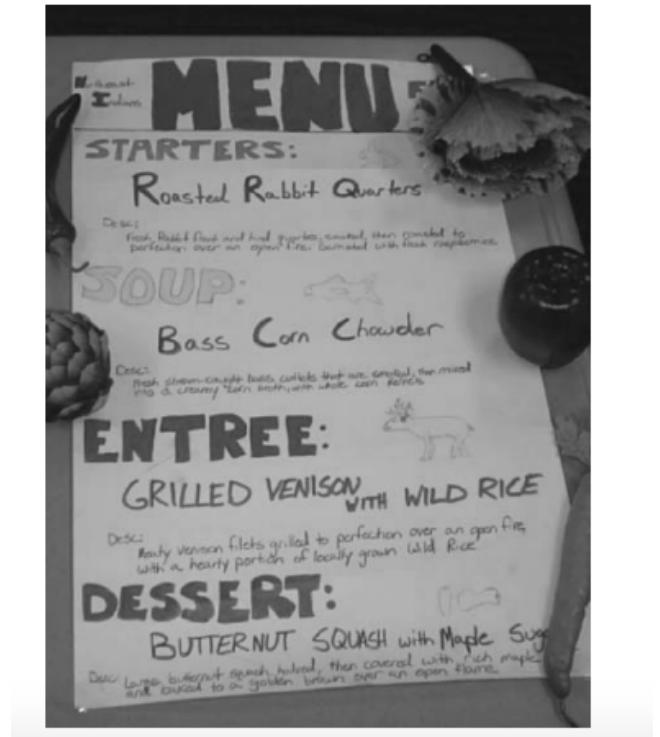 Northeast MENU
Indians
STARTERS:
Roasted Rabbit Quarters
Desc:
Fresh Rabbit front and hind quarters, then roasted to
perfection over an open fire. with fresh
SOUP:
Bass Corn Chowder
Desc:
Fresh stream-caught bass cutlets that are smoked, then mixed
into a creamy corn broth, with whole corn kernels
ENTREE:
GRILLED VENISON WITH WILD RICE
Desc:
Meaty venison filets grilled to perfection over an open fire,
with a hearty portion of locally grown Wild Rice
DESSERT:
BUTTERNUT SQUASH with Maple Sug
Desc: Large butternut squash halved, then covered with rich maple
and baked to a golden brown over an open flame